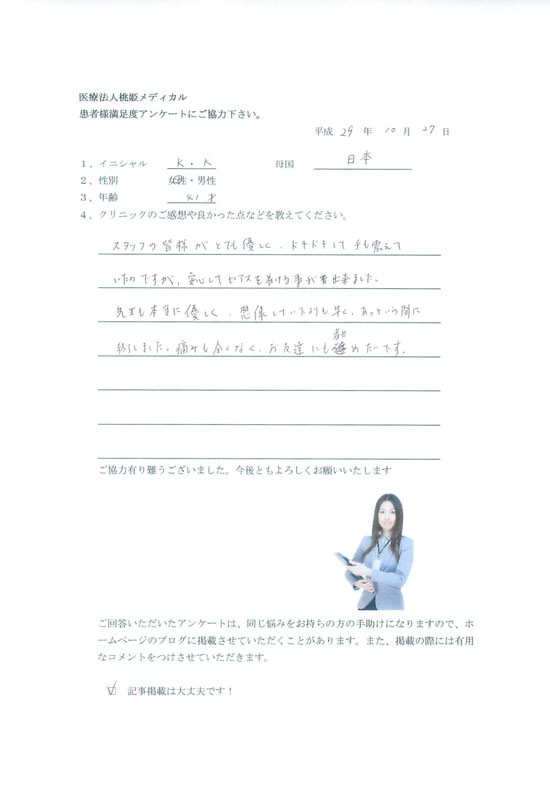 医療法人桃姫メディカル
患者様満足度アンケートにご協力下さい。
平成 29 年 10 月 27 日
1、イニシャル K・K 母国 日本
2、性別 女性・男性
3、年齢 41 才
4、クリニックのご感想や良かった点などを教えてください。
スタッフの皆様がとても優しく、ドキドキして手も震えて
いたのですが、安心してピアスを着ける事が出来ました。
先生も本当に優しく、想像していたよりも早く、あっという間に
終了しました。痛みも全くなく、お友達にもめたいです。
ご協力有り難うございました。今後ともよろしくお願いいたします
ご回答いただいたアンケートは、同じ悩みをお持ちの方の手助けになりますので、ホ
ームページのブログに掲載させていただくことがあります。また、掲載の際には有用
なコメントをつけさせていただきます。
☑ 記事掲載は大丈夫です！